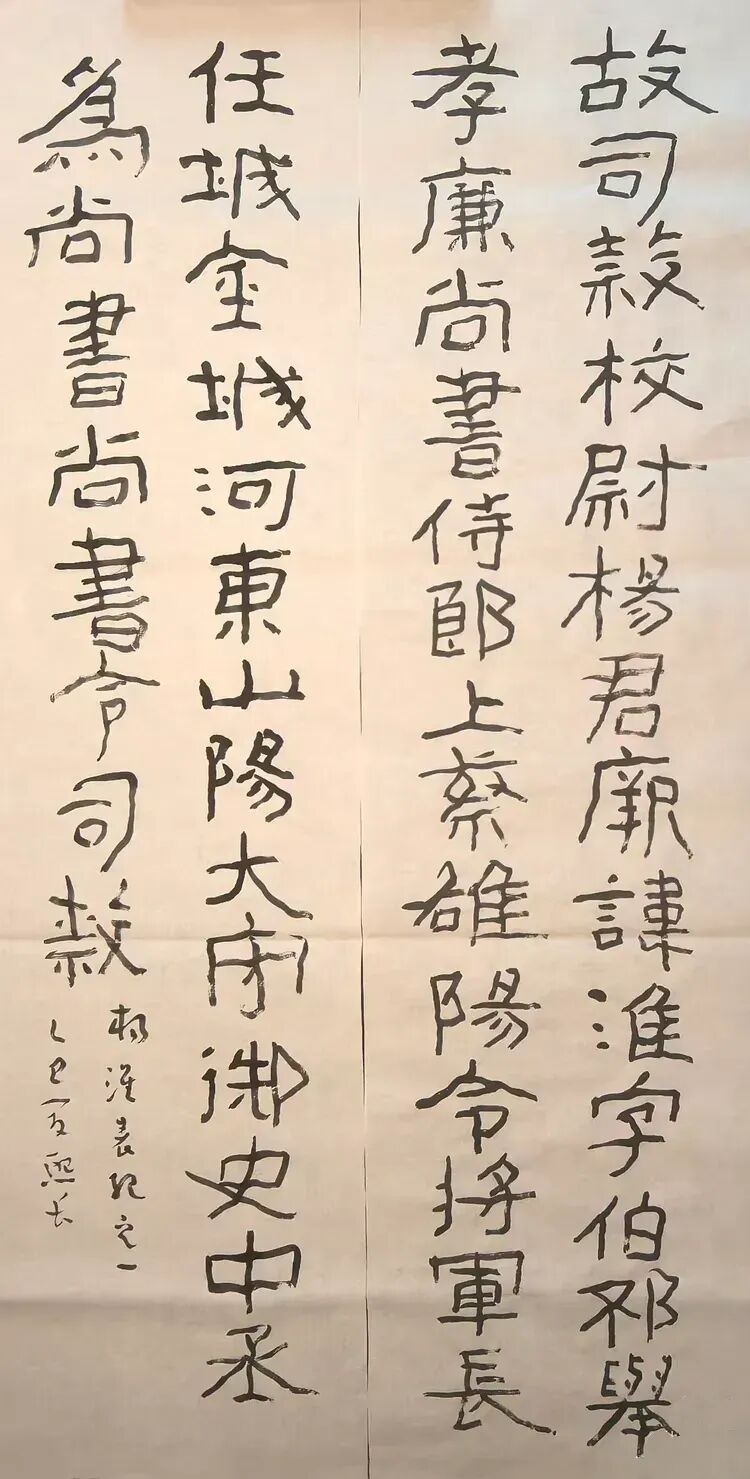 故司隸校尉楊君厥諱淮字伯邳舉
孝廉尚書侍郎上蔡雒陽令將軍長
任城金城河東山陽大守御史中丞
為尚書尚書令司隸
楊淮表紀之一
乙巳夏熙